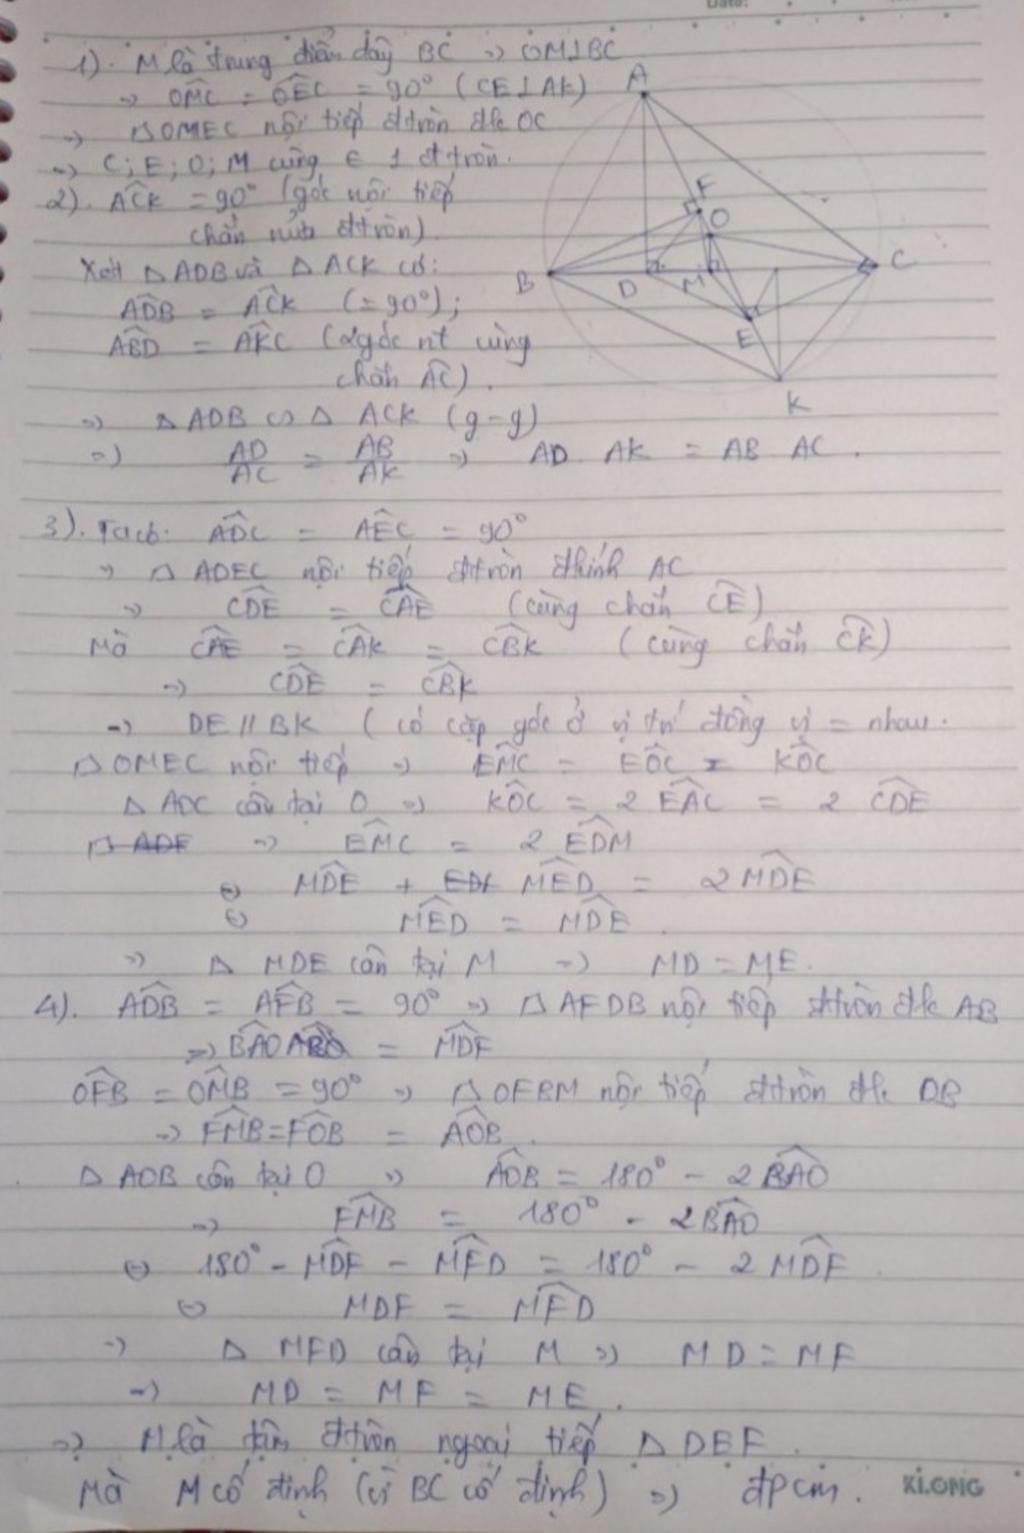 1). M là trung điểm dây BC => OM⊥BC
=> OMC = OEC = 90° (CE⊥AK)
=> □OMEC nội tiếp đtròn đk OC
=> C; E; O; M cùng ∈ 1 đtròn.
2). ACK = 90° (góc nội tiếp
chắn nửa đtròn)
Xét △ADB và △ACK có:
ADB = ACK (=90°);
ABD = AKC (2 góc nt cùng
chắn AC).
=> △ADB ∽ △ACK (g-g)
=> AD/AC = AB/AK => AD. AK = AB. AC.
A
F
O
B
D
M
C
E
K
3). Tacó: ADC = AEC = 90°
=> □ADEC nội tiếp đtròn đkính AC
=> CDE = CAE (cùng chắn CE)
Mà CAE = CAK = CBK (cùng chắn CK)
=> CDE = CBK
=> DE // BK (có cặp góc ở vị trí đồng vị = nhau.
□OMEC nội tiếp => EMC = EOC = KOC
△AOC cân tại O => KOC = 2 EAC = 2 CDE
□ADE => EMC = 2 EDM
⇔ MDE + MED = 2MDE
⇔ MED = MDE.
=> △MDE cân tại M => MD = ME.
4). ADB = AFB = 90° => □AFDB nội tiếp đtròn đk AB
=> BAO = MDF
OFB = OMB = 90° => □OFBM nội tiếp đtròn đk OB
=> FMB = FOB = AOB.
△AOB cân tại O => AOB = 180° - 2BAO
=> FMB = 180° - 2BAO
⇔ 180° - MDF - MFD = 180° - 2 MDF.
⇔ MDF = MFD
=> △MFD cân tại M => MD = MF
=> MD = MF = ME.
=> M là tâm đtròn ngoại tiếp △DEF.
Mà M cố định (vì BC cố định) => đpcm.
KLONG